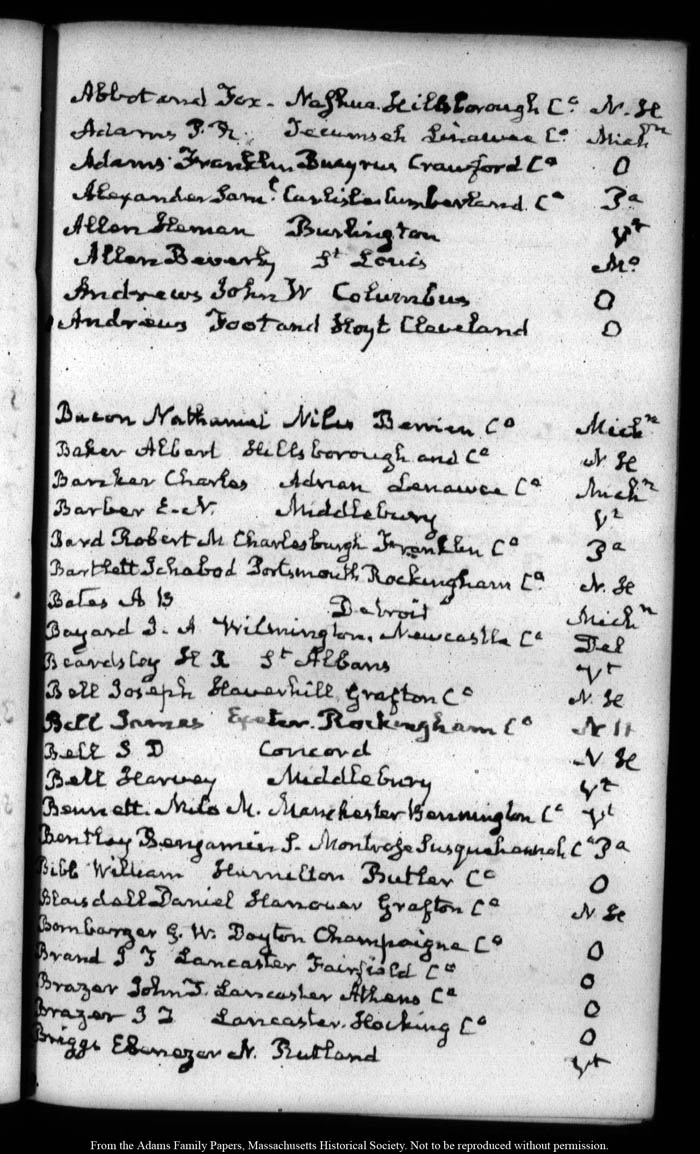 Abbot and Fox - Nashua Hillsborough Co N. H
Adams P. R. Tecumseh Linawee Co Michn
Adams Franklin Bucyrus Crawford Co O
Alexander Saml Carlisle Cumberland Co Pa
Allen Heman Burlington Vt
Allen Beverly St Louis Mo
Andrews John W Columbus O
Andrews Foot and Hoyt Cleveland O
Bacon Nathaniel Niles Berrien Co Michn
Baker Albert Hillsborough and Co N H
Barker Charles Adrian Lenawee Co Michn
Barber E. N. Middlebury Vt
Bard Robert M Charlesburgh Franklin Co Pa
Bartlett Ichabod Portsmouth Rockingham Co N. H
Bates A B Detroit Michn
Bayard J. A Wilmington, Newcastle Co Del
Beardsley H R St Albans Vt
Bell Joseph Haverhill Grafton Co N. H
Bell James Exeter. Rockingham Co N H
Bell S D Concord N H
Bell Harvey Middlebury Vt
Bennett. Milo M. Manchester Bennington Co Vt
Bentley Benjamin S. Montrose Susquehannah Co Pa
Bibb William Hamilton Butler Co O
Blaisdell Daniel Hanover Grafton Co N. H
Bombarger G. W. Dayton Champaigne Co O
Brand J F Lancaster Fairfield Co O
Brazer John T. Lancaster Athens Co O
Brazer J T Lancaster. Hocking Co O
Briggs Ebenezer N. Rutland Vt
From the Adams Family Papers, Massachusetts Historical Society. Not to be reproduced without permission.